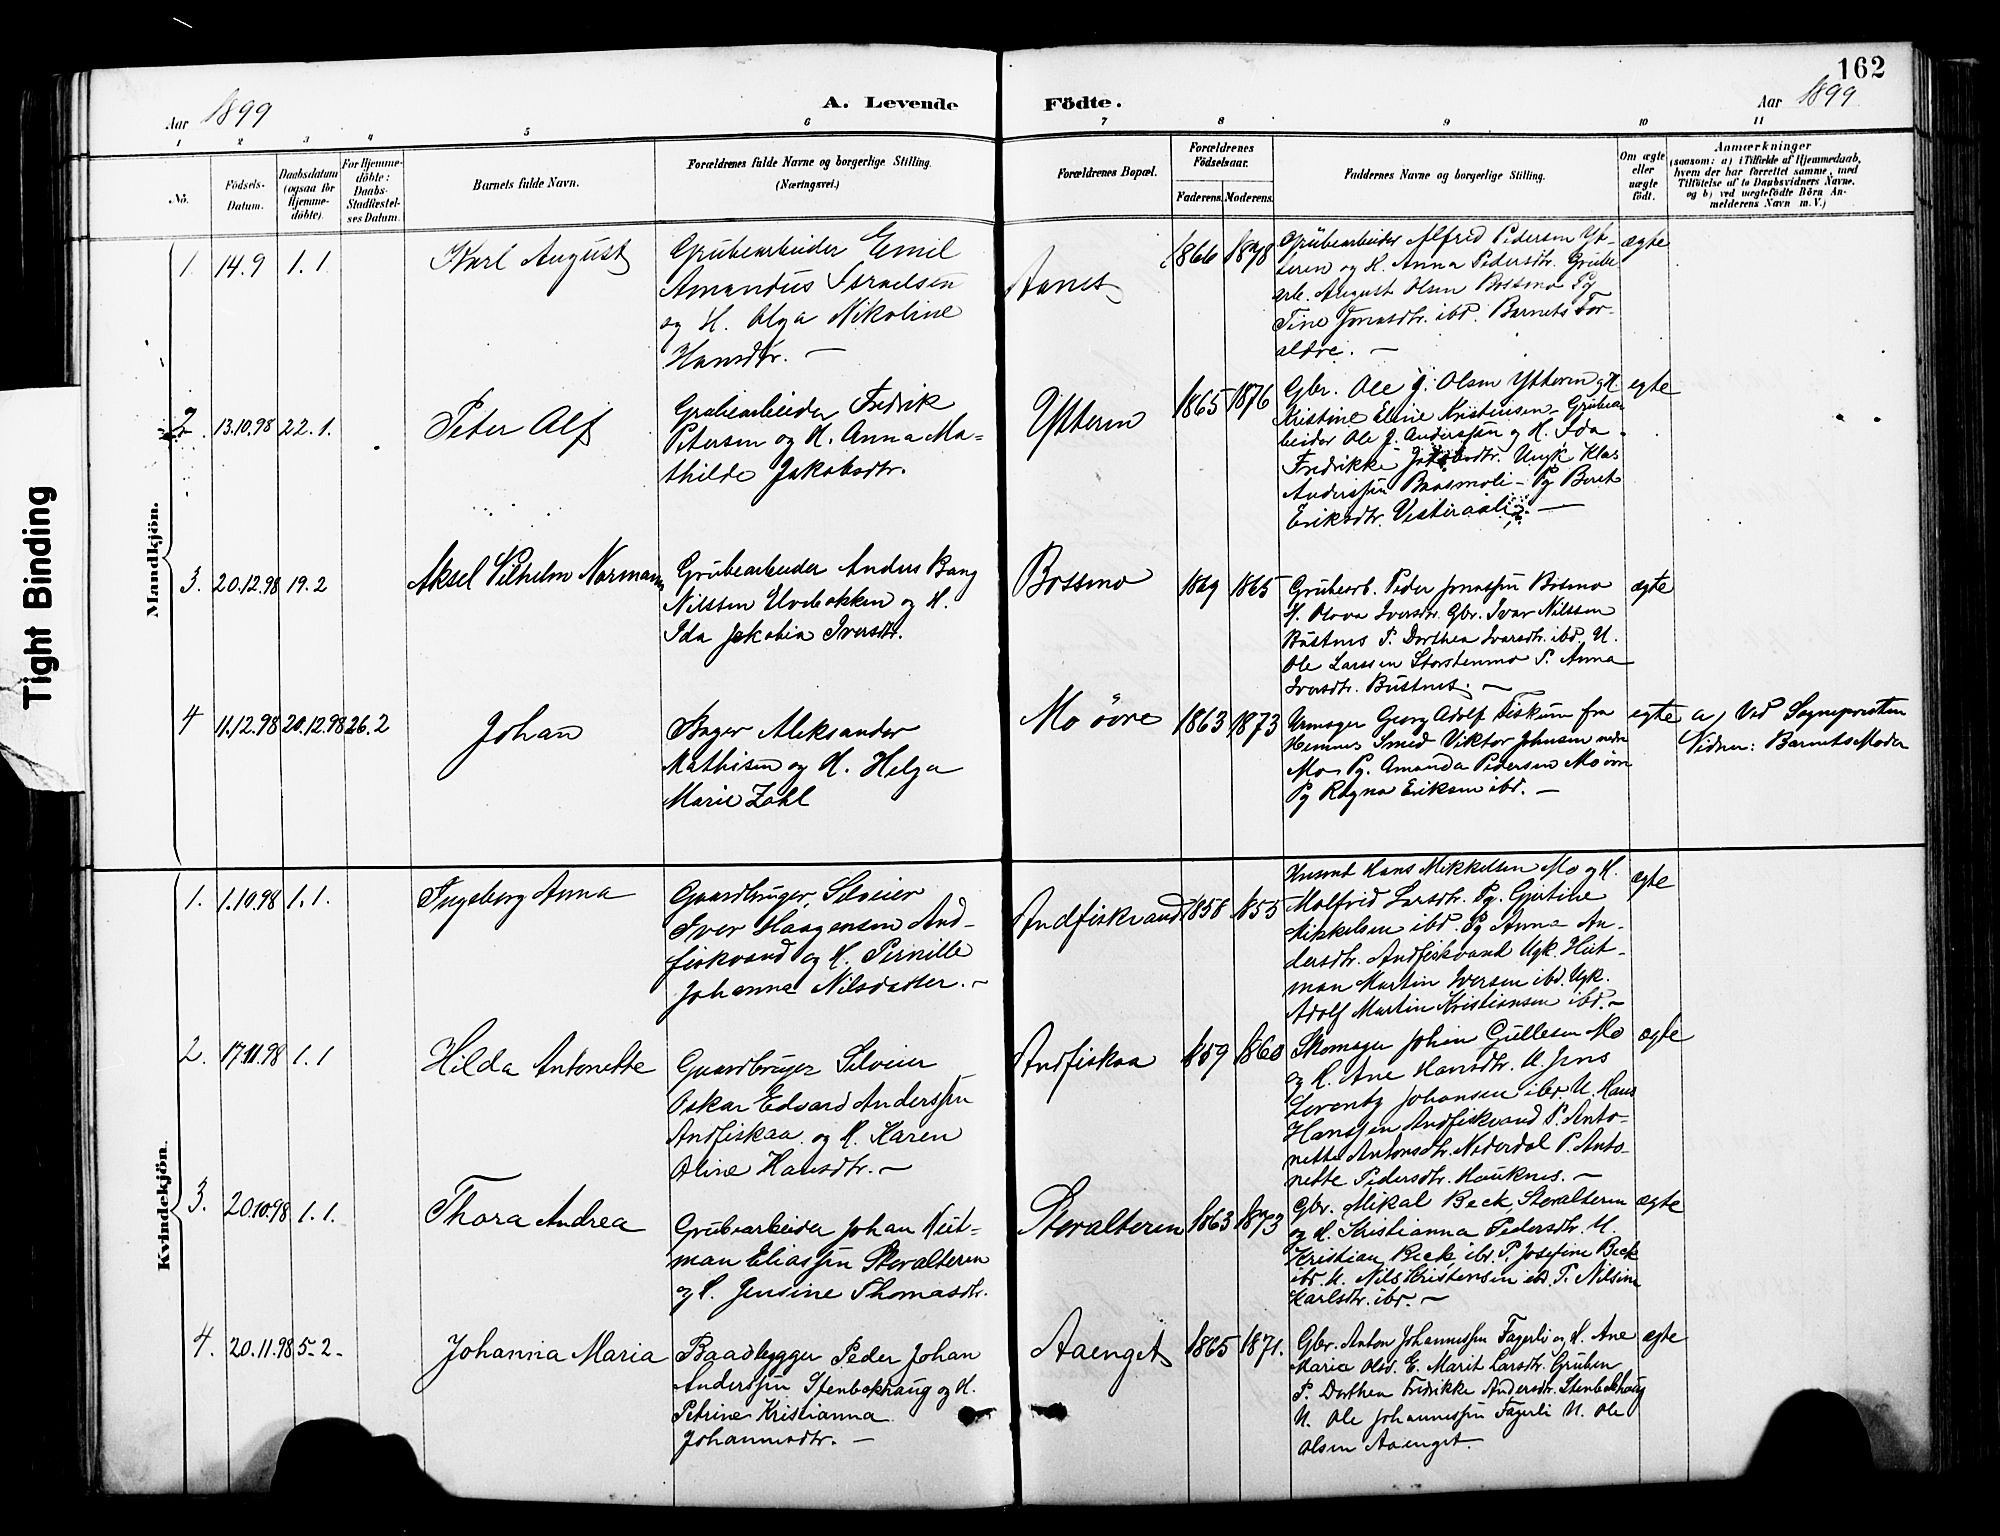 162
Aar 1899
A. Levende
Födte.
Aar 1899
1 2 3 4 5 6 7 8 9 10 11
No.
Födsels-
Datum.
Daabsdatum
(ogsaa for
Hjemme-
döbte).
For Hjemme-
döbte:
Daabs-
Stadfæstel-
ses Datum.
Barnets fulde Navn.
Forældrenes fulde Navne og borgerlige Stilling.
(Næringsvei.)
Forældrenes Bopæl.
Forældrenes
Födselsaar.
Faderens. Moderens.
Faddernes Navne og borgerlige Stilling.
Om ægte
eller
uægte
födt.
Anmærkninger
(saasom: a) i Tilfælde af Hjemmedaab,
hvem der har forrettet samme, med
Tilföielse af to Daabsvidners Navne,
og b) ved uægtefödte Börn An-
melderens Navn m. V.)
Tight Binding
Mandkjön.
1. 14.9 1.1
Karl August
Grubearbeider Emil
Amandus Israelsen
og H. Olga Nikoline
Hansdtr. —
Aanes
1866 1878
Grubearbeider Alfred Pedersen Yt-
teren og H. Anna Pedersdtr. Grube
arb. August Olsen Bossmo Pg
Tine Jonasdtr. ibd. Barnets For-
ældre. —
ægte
2. 13.10.98 22.1.
Peter Alf
Grubearbeider Fredrik
Petersen og H. Anna Ma-
thilde Jakobsdtr.
Ytteren
1865 1876
Gbr. Ole J. Olsen Ytteren og H.
Kristine Eline Kristensen – Grubear
beider Ole J. Anderssen og H. Ida
Fredrikke Jakobsdtr. Ungk. Klas
Anderssen Baasmoli – Pg Beret
Eriksdtr. Vesteraali —
egte
3. 20.12.98 19.2
Aksel Vilhelm Normann
Grubearbeider Anders Bang
Nilssen Elvebakken og H.
Ida Jakobia Iversdtr.
Bossmo
1869 1865
Grubearb. Peder Jonassen Bosmo
H. Olova Iversdtr. Gbr. Ivar Nilssen
Bustnes P. Dorthea Ivarsdtr. ibd. U.
Ole Larssen Storstenmo P. Anna
Iversdtr. Bustnes. —
ægte
4 11.12.98 20.12.98 26.2
Johan
Bager Aleksander
Mathisen og H. Helga
Marie Zahl
Mo övre
1863 1873
Urmager Georg Adolf Fiskum fra
Hemnes Smed Viktor Johnsen nedre
Mo Pg. Amanda Pedersen Mo övre
Pg Ragna Eriksen ibd. —
egte
a) Ved Sognepresten
Vidner: Barnets Moder
Kvindekjön.
1. 1.10.98 1.1.
Ingeborg Anna
Gaardbruger, Selveier
Iver Haagensen And-
fiskvand og H. Pernille
Johanna Nilsdatter. —
Andfiskvand
1858 1855
Husmd Hans Mikkelsen Mo og H.
Molfrid Larsdtr. Pg. Gjertine
Mikkelsen ibd. Pg Anna An-
dersdtr. Andfiskvand Ugk. Heit-
man Martin Iversen ibd. Ugk.
Adolf Martin Kristiansen ibd. —
ægte
2. 17.11.98 1.1
Hilda Antonette
Gaardbruger Selveier
Oskar Edvard Anderssen
Andfiskaa og H. Karen
Oline Hansdtr. —
Andfiskaa
1859 1860
Skomager Johan Gullesen Mo
og H. Ane Hansdtr. U. Jens
Lorentz Johansen ibd. U. Hans
Hanssen Andfiskvand P. Anto-
nette Antonsdtr. Nederdal P. Anto-
nette Pedersdtr. Hauknes. —
ægte
3. 20.10.98 1.1.
Thora Andrea
Grubearbeider Johan Heit-
man Eliassen Storalteren
og H. Jensine Thomasdtr.
Storalteren
1863 1873
Gbr. Mikal Beck, Storalteren
og H. Kristianna Pedersdtr. U.
Kristian Beck ibd. P. Josefine Beck
ibd. U. Nils Kristensen ibd. P. Nilsine
Karlsdtr. ibd. —
ægte
4. 20.11.98 5-2-
Johanna Maria
Baadbygger Peder Johan
Anderssen Stenbekhaug og H.
Petrine Kristianna
Johannesdtr. —
Aaenget
1865 1871.
Gbr. Anton Johannessen Fagerli og H. Ane
Maria Olsd. E. Marit Larsdtr. Gruben
P. Dorthea Fredrikke Andersdtr. Stenbekhaug
U. Ole Johannessen Fagerli U. Ole
Olsen Aaenget.
ægte